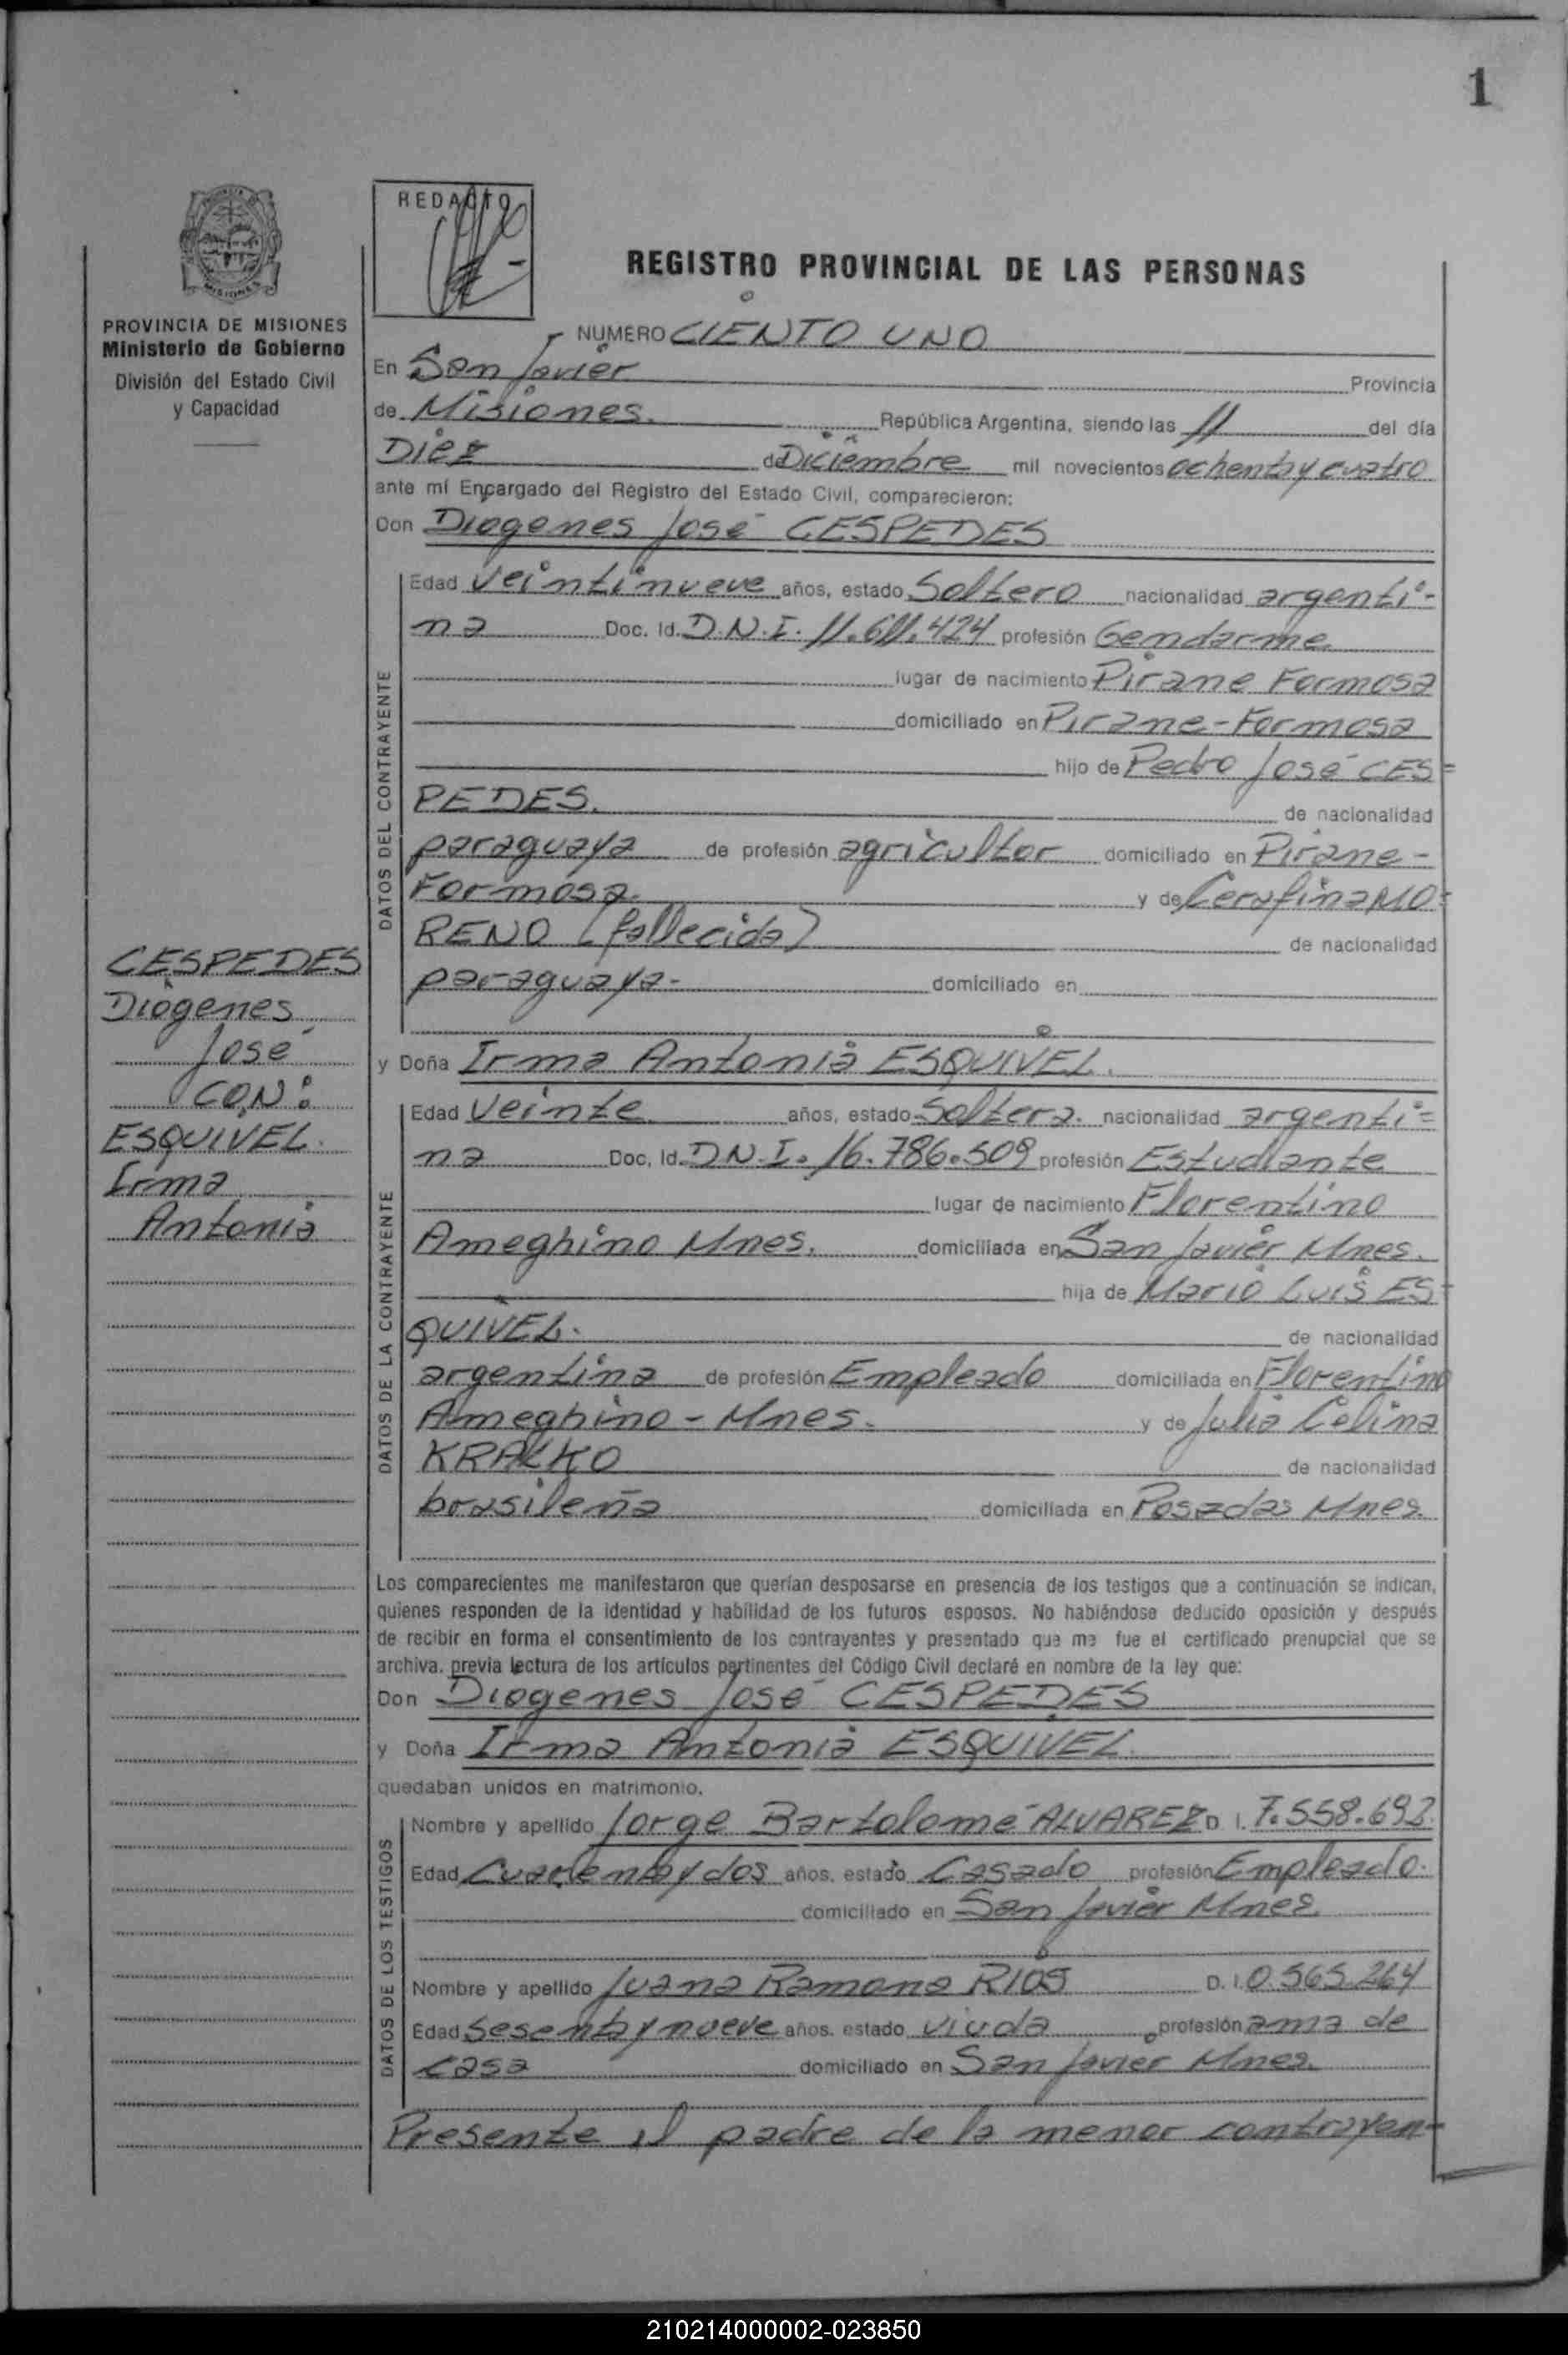 1
REDACTO
REGISTRO PROVINCIAL DE LAS PERSONAS
PROVINCIA DE MISIONES
Ministerio de Gobierno
División del Estado Civil
y Capacidad
NUMERO CIENTO UNO
En San Javier Provincia
de Misiones. República Argentina, siendo las 11 del día
Diez de Diciembre mil novecientos ochenta y cuatro
ante mí Encargado del Registro del Estado Civil, comparecieron:
Don Diogenes José CESPEDES
DATOS DEL CONTRAYENTE
Edad Veintinueve años, estado Soltero nacionalidad argenti-
na Doc. Id. D.N.I. 11.611.424 profesión Gendarme
lugar de nacimiento Pirane Formosa
domiciliado en Pirane-Formosa
hijo de Pedro José CES=
PEDES. de nacionalidad
paraguaya de profesión agricultor domiciliado en Pirane-
Formosa. y de Cerafina MO=
RENO (fallecida) de nacionalidad
paraguaya- domiciliado en
CESPEDES
Diogenes
José
CON:
ESQUIVEL.
Irma
Antonia
y Doña Irma Antonia ESQUIVEL.
DATOS DE LA CONTRAYENTE
Edad Veinte años, estado Soltera. nacionalidad argenti=
na Doc. Id. D.N.I. 16.786.509 profesión Estudiante
lugar de nacimiento Florentino
Ameghino Mnes. domiciliada en San Javier Mnes.
hija de Mario Luis ES-
QUIVEL. de nacionalidad
argentina de profesión Empleado domiciliada en Florentino
Ameghino - Mnes. y de Julia Celina
KRALKO de nacionalidad
brasileña domiciliada en Posadas Mnes.
Los comparecientes me manifestaron que querían desposarse en presencia de los testigos que a continuación se indican,
quienes responden de la identidad y habilidad de los futuros esposos. No habiéndose deducido oposición y después
de recibir en forma el consentimiento de los contrayentes y presentado que me fue el certificado prenupcial que se
archiva, previa lectura de los artículos pertinentes del Código Civil declaré en nombre de la ley que:
Don Diogenes José CESPEDES
y Doña Irma Antonia ESQUIVEL.
quedaban unidos en matrimonio.
DATOS DE LOS TESTIGOS
Nombre y apellido Jorge Bartolomé ALVAREZ D. I. 7.558.693.
Edad Cuarenta y dos años, estado Casado profesión Empleado.
domiciliado en San Javier Mnes.
Nombre y apellido Juana Ramona RIOS D. I. 0.565.264
Edad Sesenta y nueve años, estado viuda profesión ama de
casa domiciliado en San Javier Mnes.
Presente el padre de la menor contrayen-
210214000002-023850